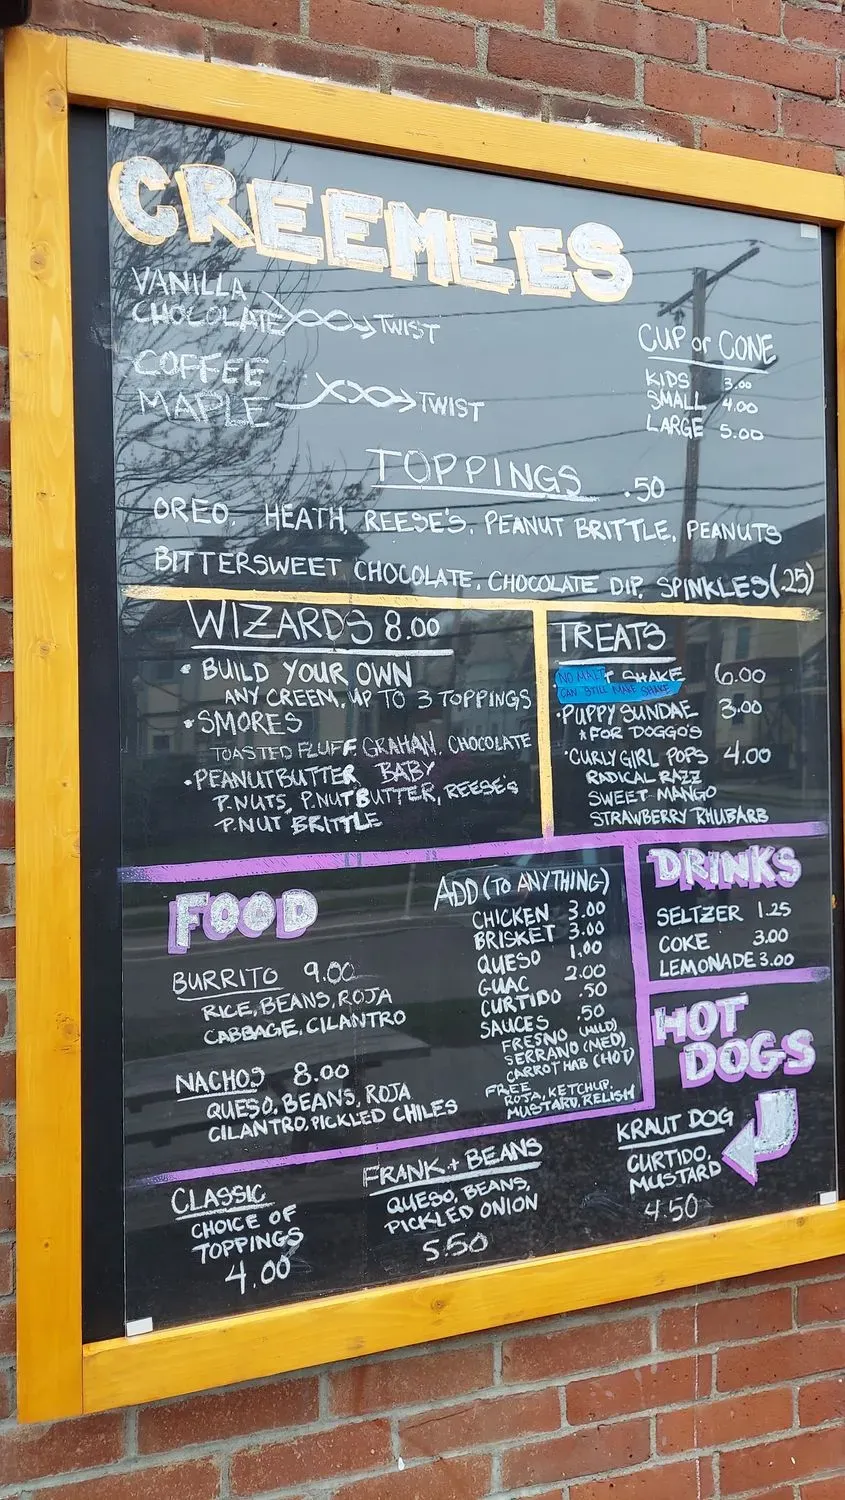 CREEMEES
VANILLA
CHOCOLATE TWIST
COFFEE
MAPLE TWIST
CUP or CONE
KIDS 3.00
SMALL 4.00
LARGE 5.00
TOPPINGS .50
OREO, HEATH, REESE'S, PEANUT BRITTLE, PEANUTS
BITTERSWEET CHOCOLATE, CHOCOLATE DIP, SPINKLES (.25)
WIZARDS 8.00
• BUILD YOUR OWN
ANY CREEM, UP TO 3 TOPPINGS
• SMORES
TOASTED FLUFF, GRAHAN, CHOCOLATE
• PEANUTBUTTER BABY
P.NUTS, P.NUTBUTTER, REESE'S
P.NUT BRITTLE
TREATS
NO MALT
T SHAKE 6.00
CAN STILL MAKE SHAKE
• PUPPY SUNDAE 3.00
* FOR DOGGO'S
• CURLY GIRL POPS 4.00
RADICAL RAZZ
SWEET MANGO
STRAWBERRY RHUBARB
FOOD
BURRITO 9.00
RICE, BEANS, ROJA
CABBAGE, CILANTRO
NACHOS 8.00
QUESO, BEANS, ROJA
CILANTRO, PICKLED CHILES
ADD (TO ANYTHING)
CHICKEN 3.00
BRISKET 3.00
QUESO 1.00
GUAC 2.00
CURTIDO .50
SAUCES .50
FRESNO (MILD)
SERRANO (MED)
CARROT HAB (HOT)
FREE
ROJA, KETCHUP,
MUSTARD, RELISH
DRINKS
SELTZER 1.25
COKE 3.00
LEMONADE 3.00
HOT
DOGS
CLASSIC
CHOICE OF
TOPPINGS
4.00
FRANK + BEANS
QUESO, BEANS,
PICKLED ONION
5.50
KRAUT DOG
CURTIDO,
MUSTARD
4.50